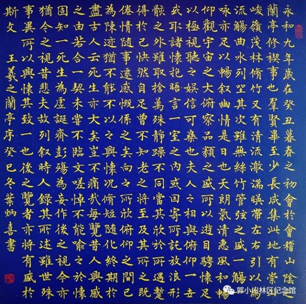 永和九年歲在癸丑暮春之初會於會稽山陰之
蘭亭脩禊事也群賢畢至少長咸集此地有崇山
峻嶺茂林脩竹又有清流激湍映帶左右引以為
流觴曲水列坐其次雖無絲竹管弦之盛一觴一
詠亦足以暢敘幽情是日也天朗氣清惠風和暢
仰觀宇宙之大俯察品類之盛所以遊目騁懷足
以極視聽之娛信可樂也夫人之相與俯仰一世
或取諸懷抱悟言一室之內或因寄所託放浪形
骸之外雖取捨萬殊靜躁不同當其欣於所遇暫
得於己快然自足不知老之將至及其所之既
倦情隨事遷感慨係之矣向之所欣俛仰之間已
為陳迹猶不能不以之興懷況脩短隨化終期於
盡古人云死生亦大矣豈不痛哉每覽昔人興感
之由若合一契未嘗不臨文嗟悼不能喻之於懷
固知一死生為虛誕齊彭殤為妄作後之視今亦
猶今之視昔悲夫故列敘時人錄其所述雖世殊
事異所以興懷其致一也後之覽者亦將有感於
斯文 王羲之蘭亭序 癸巳冬葉炳喜書
郭小彬林区纪念馆